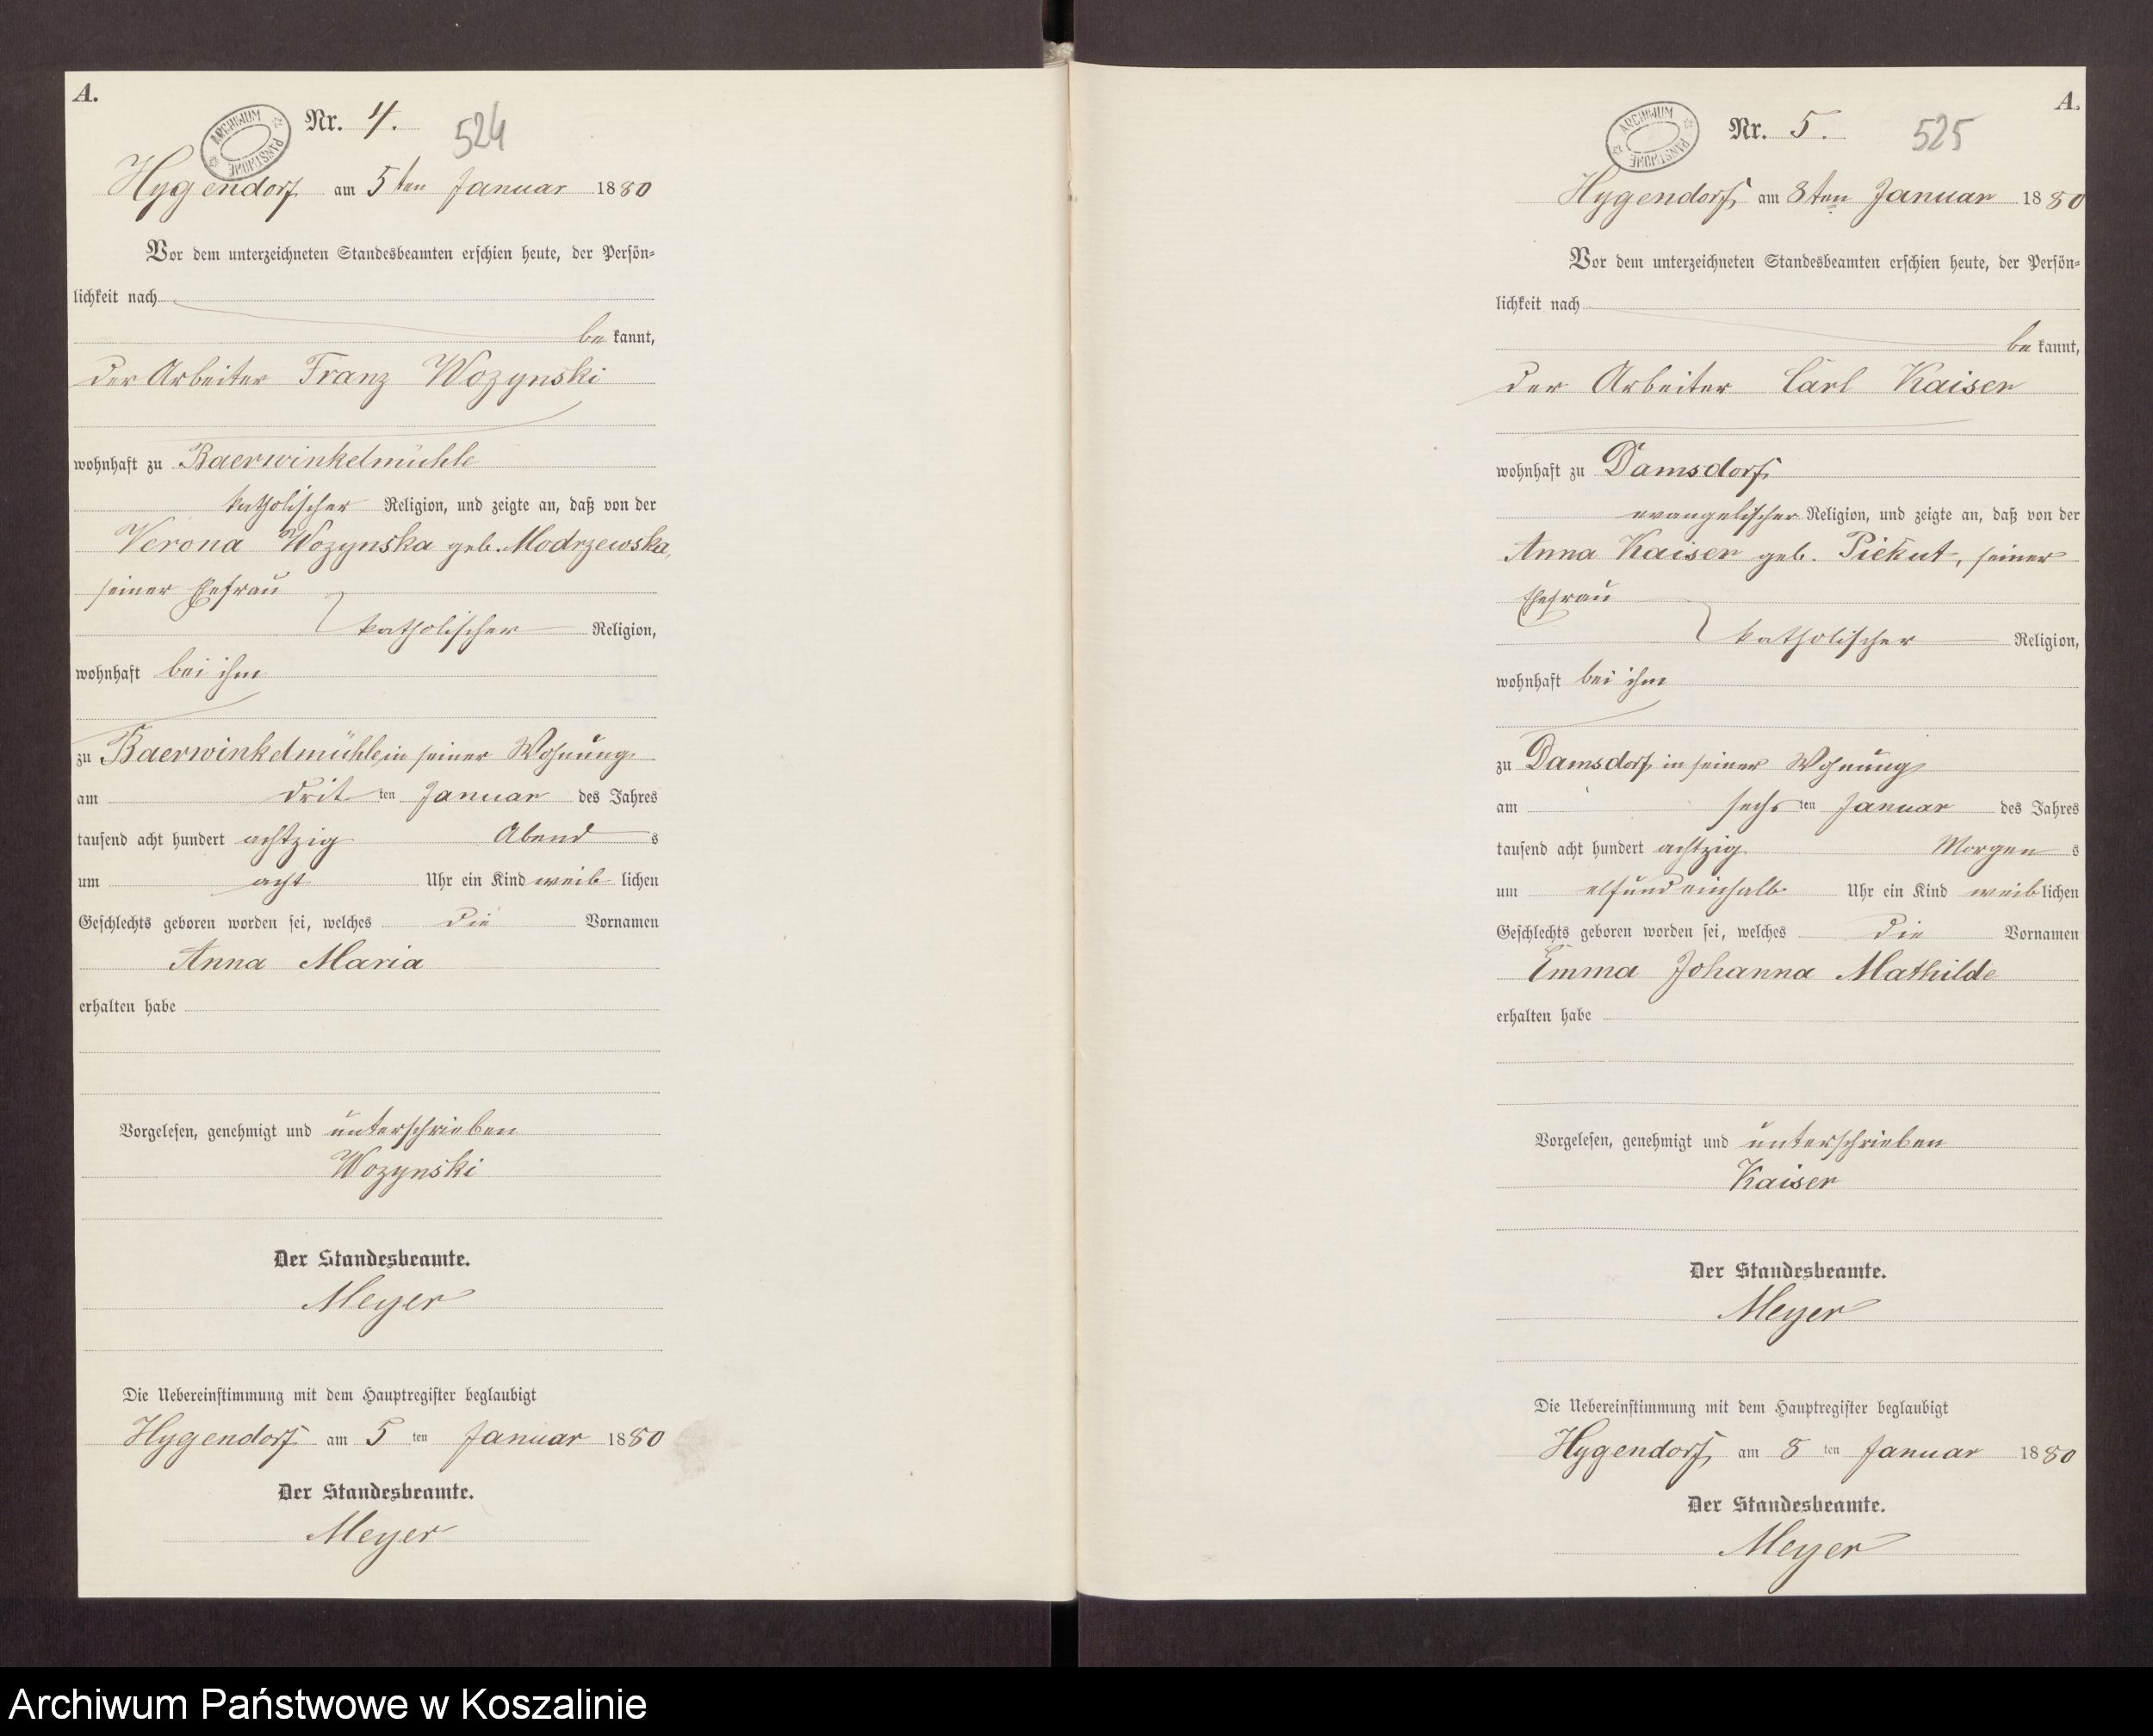 A.
ARCHIWUM PAŃSTWOWE
Nr. 4.
524
Hygendorf am 5ten Januar 1880
Vor dem unterzeichneten Standesbeamten erschien heute, der Persön-
lichkeit nach
be kannt,
der Arbeiter Franz Wozynski
wohnhaft zu Baerwinkelmühle
katholischer Religion, und zeigte an, daß von der
Verona Wozynska geb. Modrzewska,
seiner Ehefrau
katholischer Religion,
wohnhaft bei ihm
zu Baerwinkelmühle, in seiner Wohnung
am drit ten Januar des Jahres
tausend acht hundert achtzig Abend s
um acht Uhr ein Kind weib lichen
Geschlechts geboren worden sei, welches die Vornamen
Anna Maria
erhalten habe
Vorgelesen, genehmigt und unterschrieben
Wozynski
Der Standesbeamte.
Meyer
Die Uebereinstimmung mit dem Hauptregister beglaubigt
Hygendorf am 5 ten Januar 1880
Der Standesbeamte.
Meyer
A.
ARCHIWUM PAŃSTWOWE
Nr. 5.
525
Hygendorf am 8ten Januar 1880
Vor dem unterzeichneten Standesbeamten erschien heute, der Persön-
lichkeit nach
be kannt,
der Arbeiter Carl Kaiser
wohnhaft zu Damsdorf
evangelischer Religion, und zeigte an, daß von der
Anna Kaiser geb. Piekut, seiner
Ehefrau
katholischer Religion,
wohnhaft bei ihm
zu Damsdorf in seiner Wohnung
am sechs ten Januar des Jahres
tausend acht hundert achtzig Morgen s
um elfundeinhalb Uhr ein Kind weib lichen
Geschlechts geboren worden sei, welches die Vornamen
Emma Johanna Mathilde
erhalten habe
Vorgelesen, genehmigt und unterschrieben
Kaiser
Der Standesbeamte.
Meyer
Die Uebereinstimmung mit dem Hauptregister beglaubigt
Hygendorf, am 8 ten Januar 1880
Der Standesbeamte.
Meyer
Archiwum Państwowe w Koszalinie